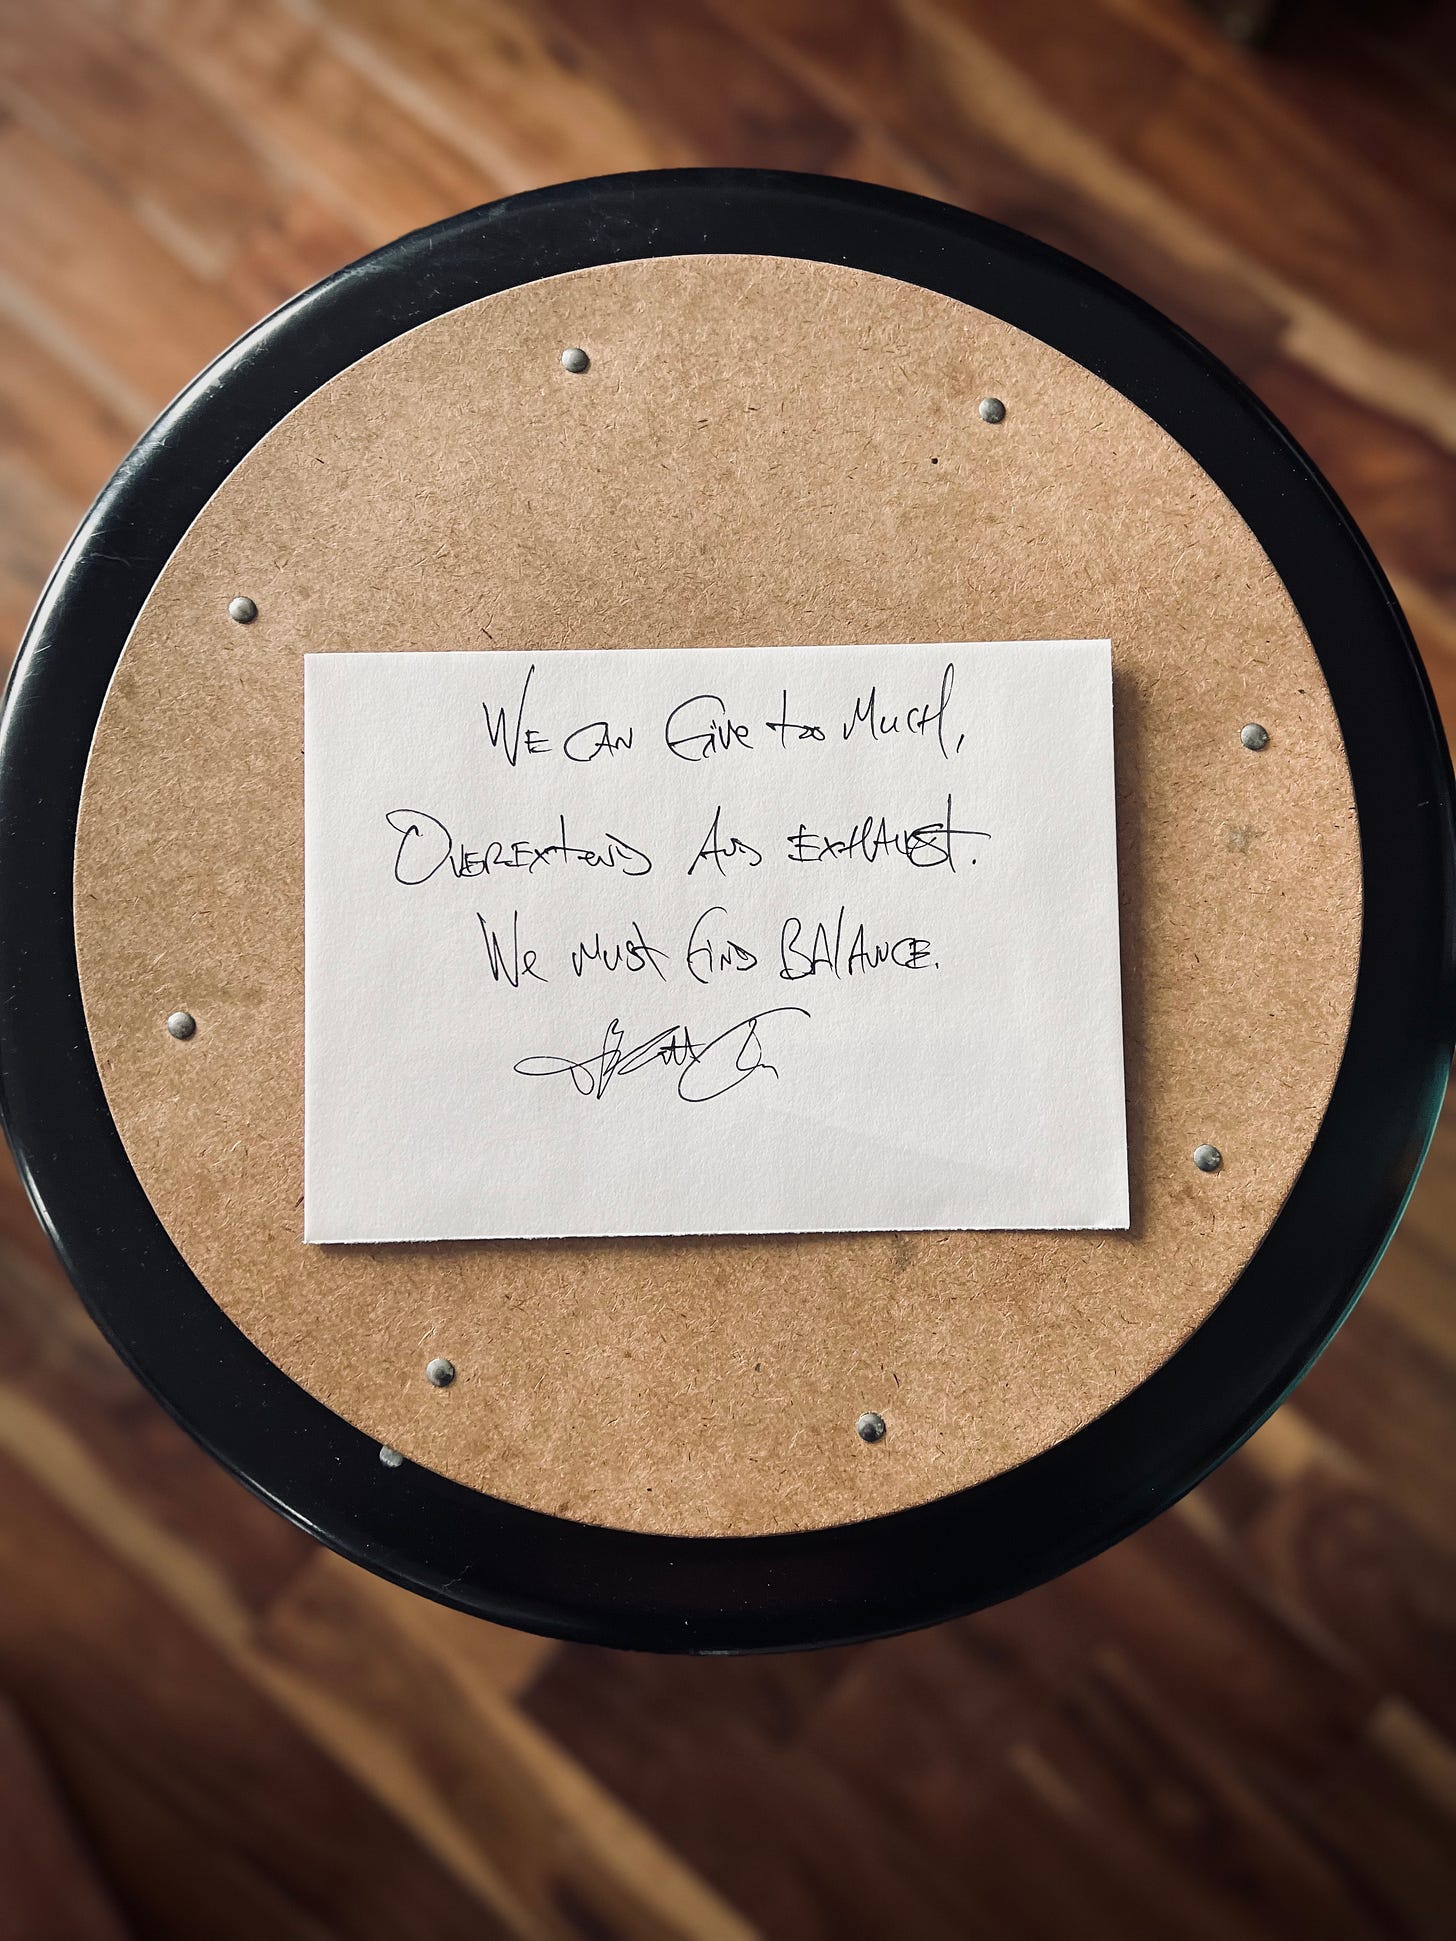 We can Give too Much,
Overextend And Exhaust.
We must Find Balance.